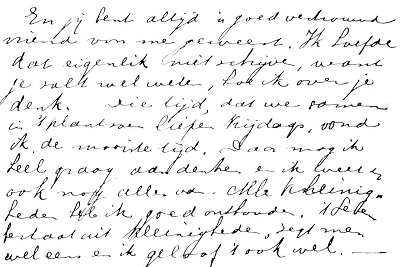 En jij bent altijd 'n goed vertrouwd
vriend van me geweest. Ik hoefde
dat eigenlik niet schrijve, want
je zult wel wete, hoe ik over je
denk. Die tijd, dat we samen
in 't plantsoen liepen Vrijdags, vond
ik de mooiste tijd. Daar mag ik
heel graag aan denke en ik weet er
ook nog alles van. Alle kleinig-
heden heb ik goed onthoude. 't Leven
bestaat uit kleinighede, zegt men
wel eens en ik geloof 't ook wel. —